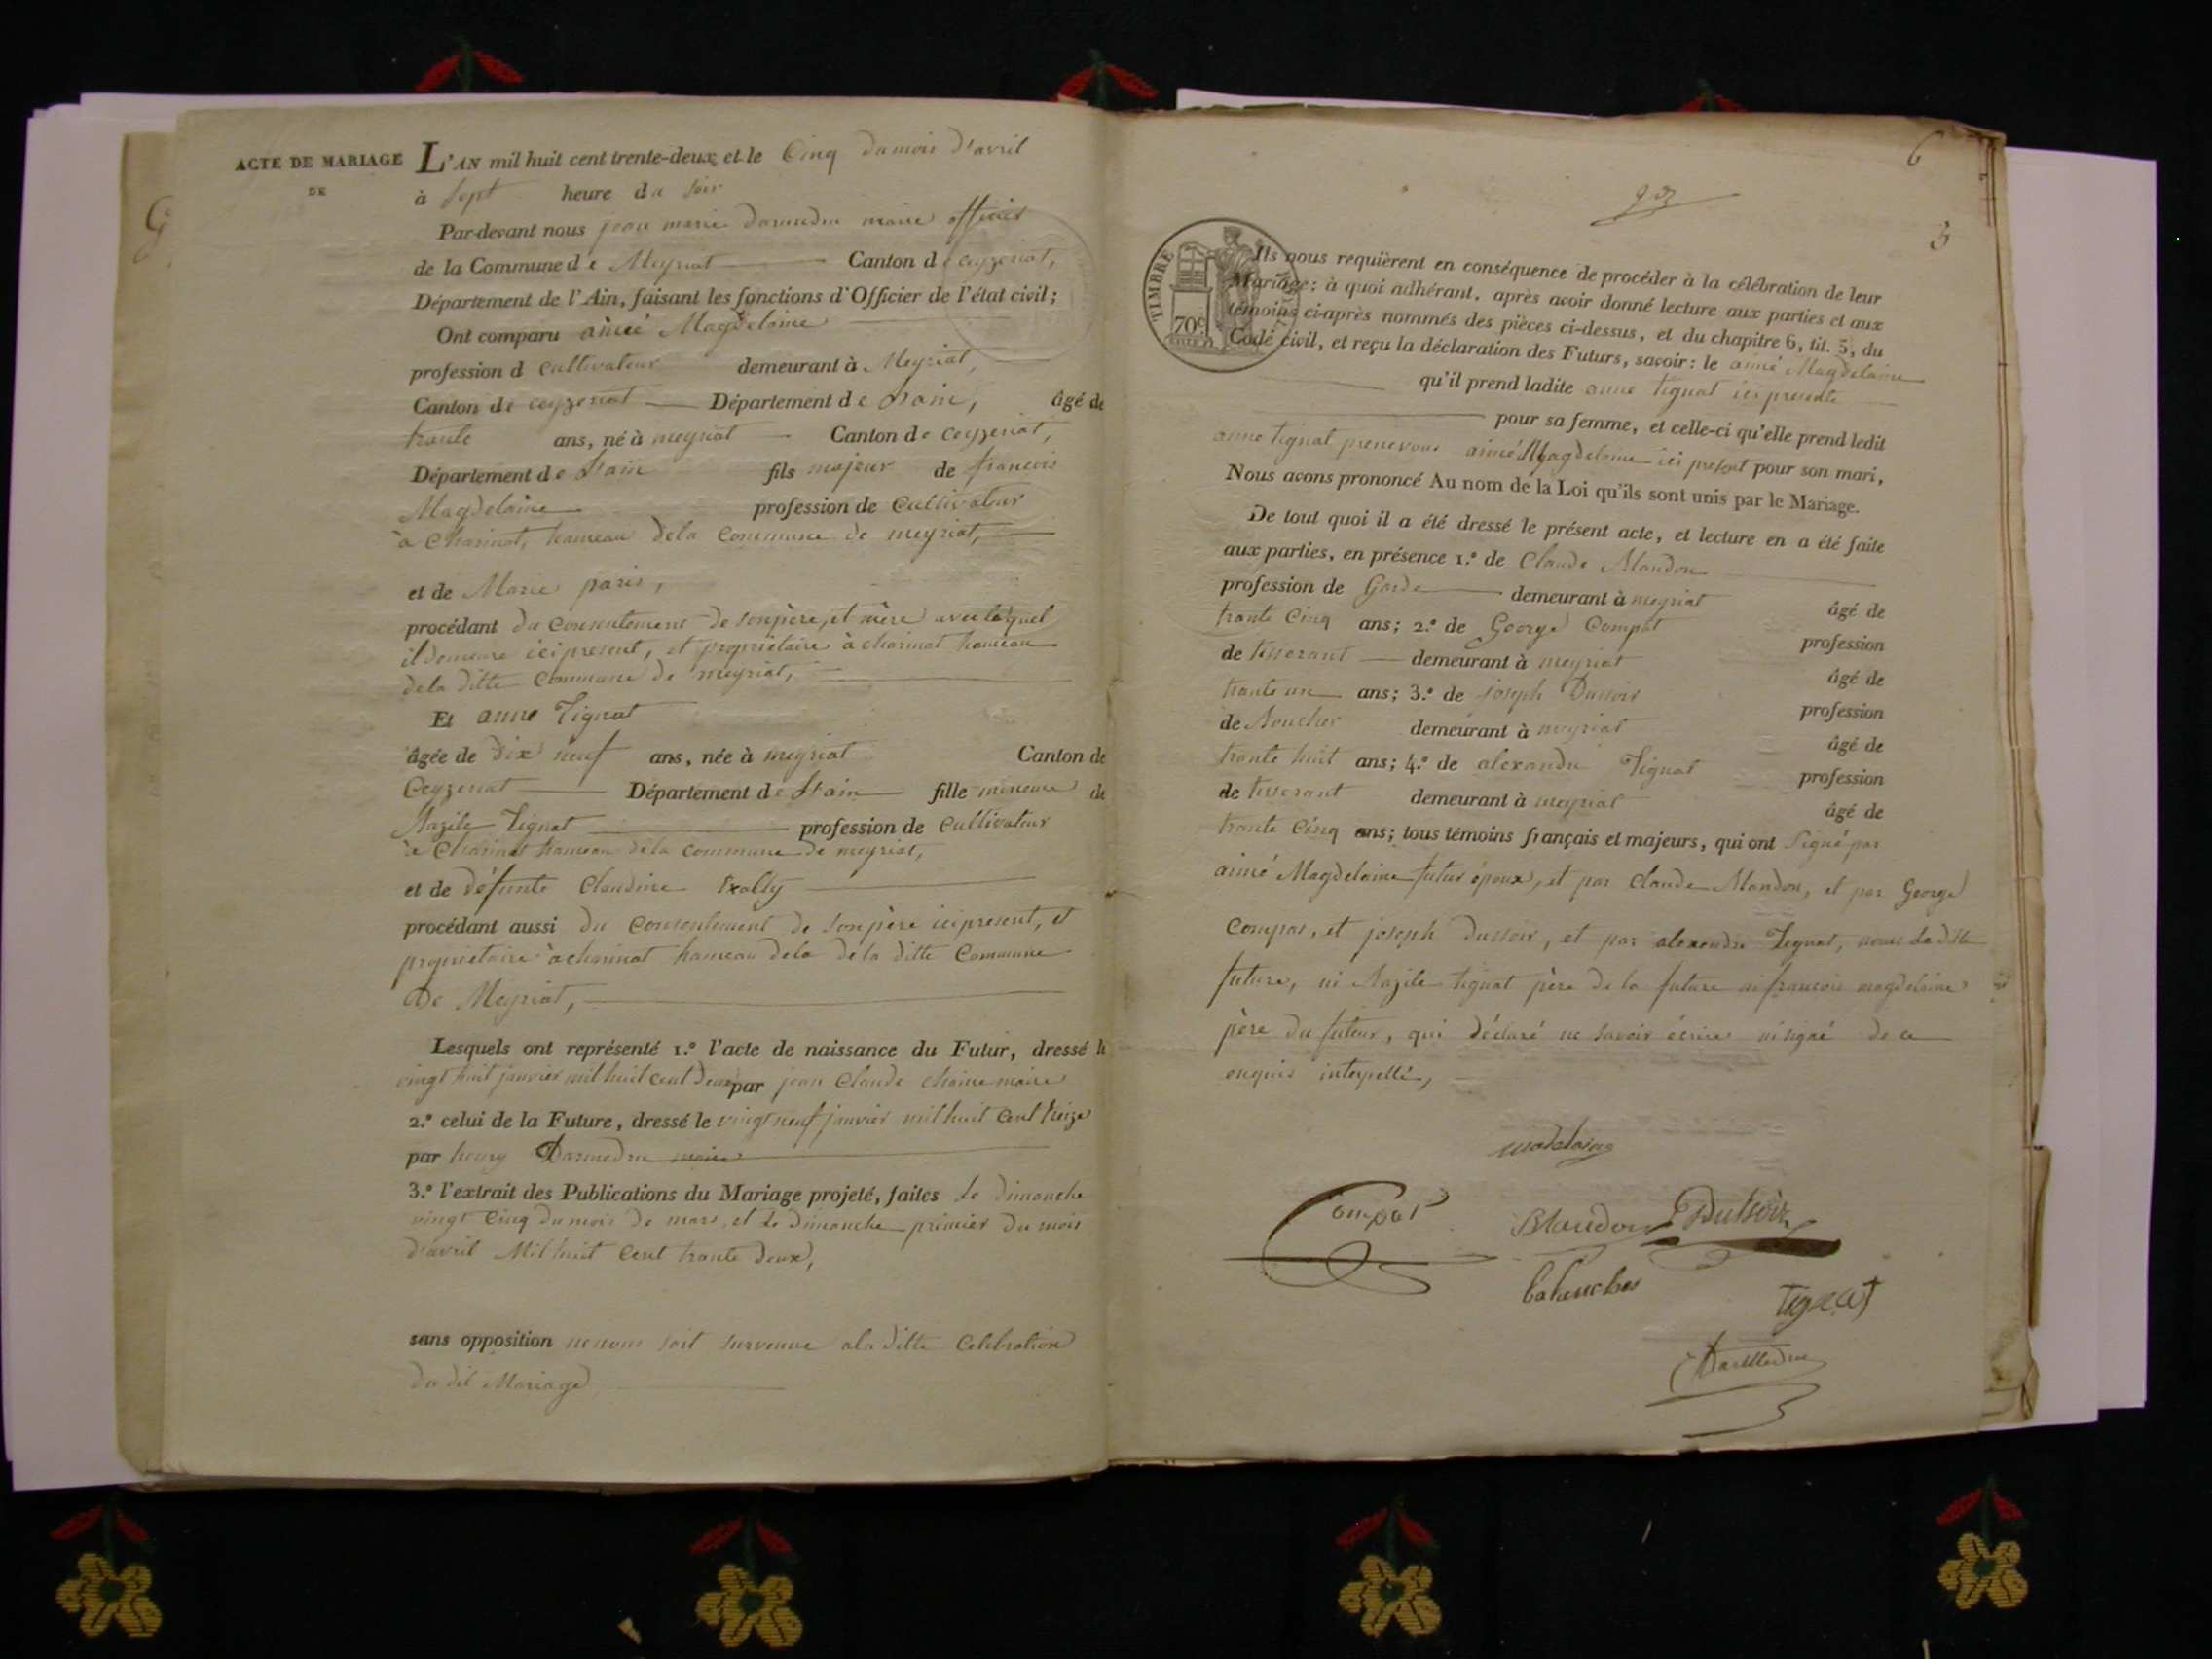 ACTE DE MARIAGE
DE
L'AN mil huit cent trente-deux et le Cinq du mois d'avril
à sept heure du soir
Par-devant nous jean marie Darmedru maire officier
de la Commune de Meyriat Canton de ceyzeriat,
Département de l'Ain, faisant les fonctions d'Officier de l'état civil;
Ont comparu aimé Magdelaine
profession d cultivateur demeurant à Meyriat,
Canton de ceyzeriat Département de Lain, âgé de
trante ans, né à meyriat Canton de ceyzeriat,
Département de Lain fils majeur de francois
Magdelaine profession de Cultivateur
à Charinat, hameau dela commune de meyriat,
et de Marie paris,
procédant du consentement de son père, et mère avec lequel
il demeure ici present, et propriétaire à charinat hameau
dela ditte Commune de meyriat,
Et anne Tignat
âgée de dix neuf ans, née à meyriat Canton de
Ceyzeriat Département de Lain fille mineure de
Bazile Tignat profession de Cultivateur
à Charinat hameau dela commune de meyriat,
et de défunte Claudine
procédant aussi du consentement de son père ici present, et
propriétaire à charinat hameau dela dela ditte Commune
De Meyriat,
Lesquels ont représenté 1.º l'acte de naissance du Futur, dressé le
vingt huit janvier mil huit cent deux par jean Claude chaine maire
2.º celui de la Future, dressé le vingt neuf janvier mil huit cent treize
par henry Darmedru maire
3.º l'extrait des Publications du Mariage projeté, faites Le dimanche
vingt cinq du mois de mars, et Le dimanche primier du mois
d'avril Mil huit Cent trante deux,
sans opposition ne nous soit survenue ala ditte Celebration
du dit Mariage
6
3
TIMBRE
70c
Ils nous requièrent en conséquence de procéder à la célébration de leur
Mariage; à quoi adhérant, après avoir donné lecture aux parties et aux
témoins ci-après nommés des pièces ci-dessus, et du chapitre 6, tit. 5, du
Code civil, et reçu la déclaration des Futurs, savoir: le aimé Magdelaine
qu'il prend ladite anne tignat ici presente
pour sa femme, et celle-ci qu'elle prend ledit
anne tignat prenevous aimé Magdelaine ici present pour son mari,
Nous avons prononcé Au nom de la Loi qu'ils sont unis par le Mariage.
De tout quoi il a été dressé le présent acte, et lecture en a été faite
aux parties, en présence 1.º de Claude Blandon
profession de Garde demeurant à meyriat âgé de
trante Cinq ans; 2.º de George Compat profession
de tisserant demeurant à meyriat âgé de
trante un ans; 3.º de joseph Dussoir profession
de Boucher demeurant à meyriat âgé de
trante huit ans; 4.º de alexandre Tignat profession
de tisserant demeurant à meyriat âgé de
trante cinq ans; tous témoins français et majeurs, qui ont signé par
aimé Magdelaine futur époux, et par Claude Blandon, et par George
Compat, et joseph Dussoir, et par alexandre Tignat, La ditte
future, ni Bazile tignat père de la future ni francois magdelaine
père du futeur, qui déclaré ne savoir écrire ni signé de ce
enquis interpellé,
madelaine
Compat
Blandon
Dussoir
Tignat
Darmedru